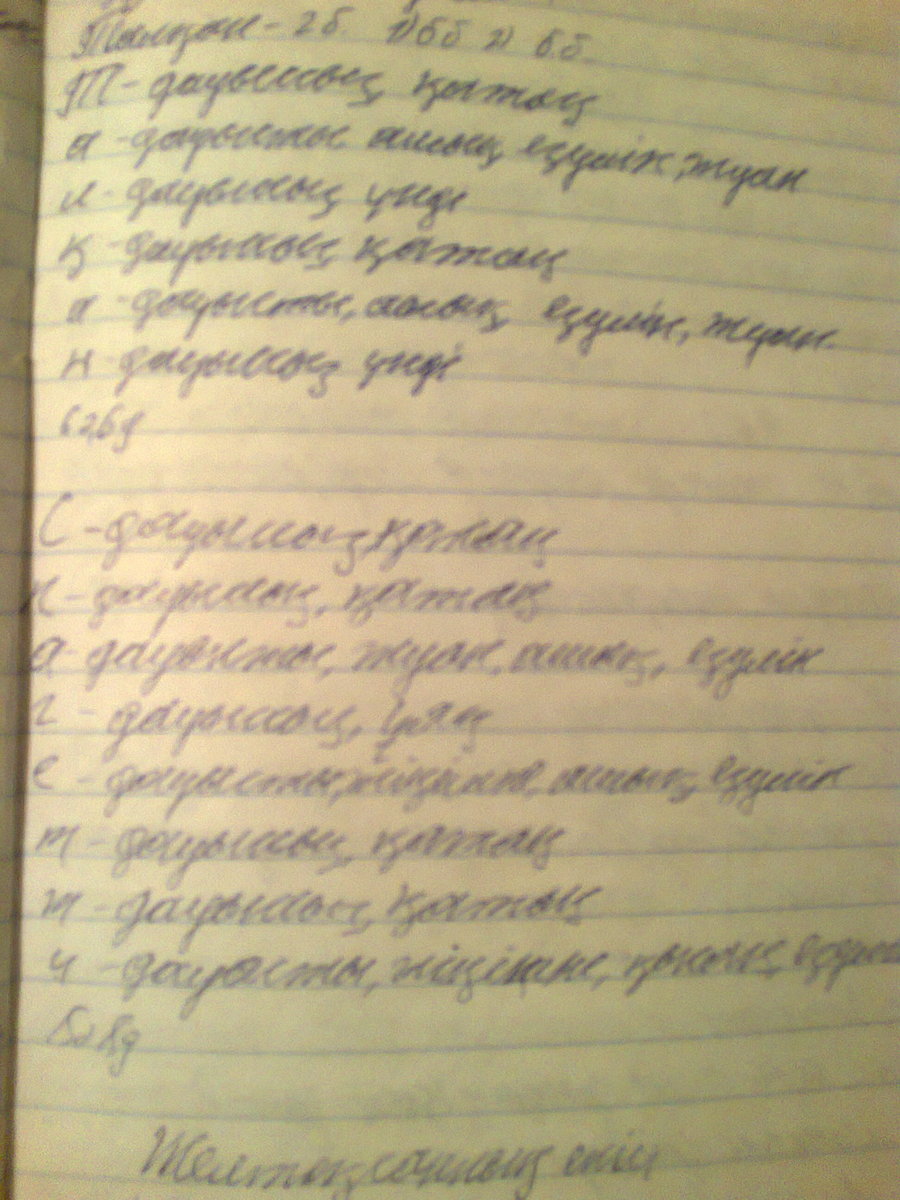 Талқан - 2 б. 1) б б 2) б.б.
Т - дауыссыз, қатаң
а - дауысты ашық езулік, жуан
л - дауыссыз үнді
қ - дауыссыз қатаң
а - дауысты, ашық езулік, жуан.
н - дауыссыз үнді
6 ә, 6 д
С - дауыссыз, қатаң
п - дауыссыз, қатаң
а - дауысты, жуан, ашық, езулік
г - дауыссыз, ұяң
е - дауысты, жіңішке, ашық, езулік
т - дауыссыз, қатаң
т - дауыссыз, қатаң
и - дауысты, жіңішке, қысаң,
8 д
Желтоқсанның екісі